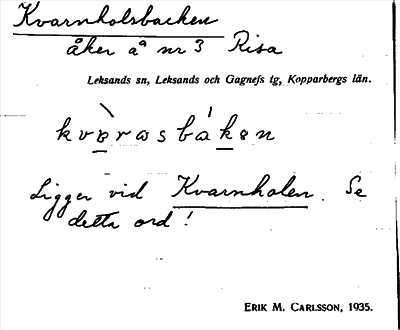 Kvarnholsbacken
åker å nr 3 Risa
Leksands sn, Leksands och Gagnefs tg, Kopparbergs län.
Ligger vid Kvarnholen. Se
detta ord!
ERIK M. CARLSSON, 1935.